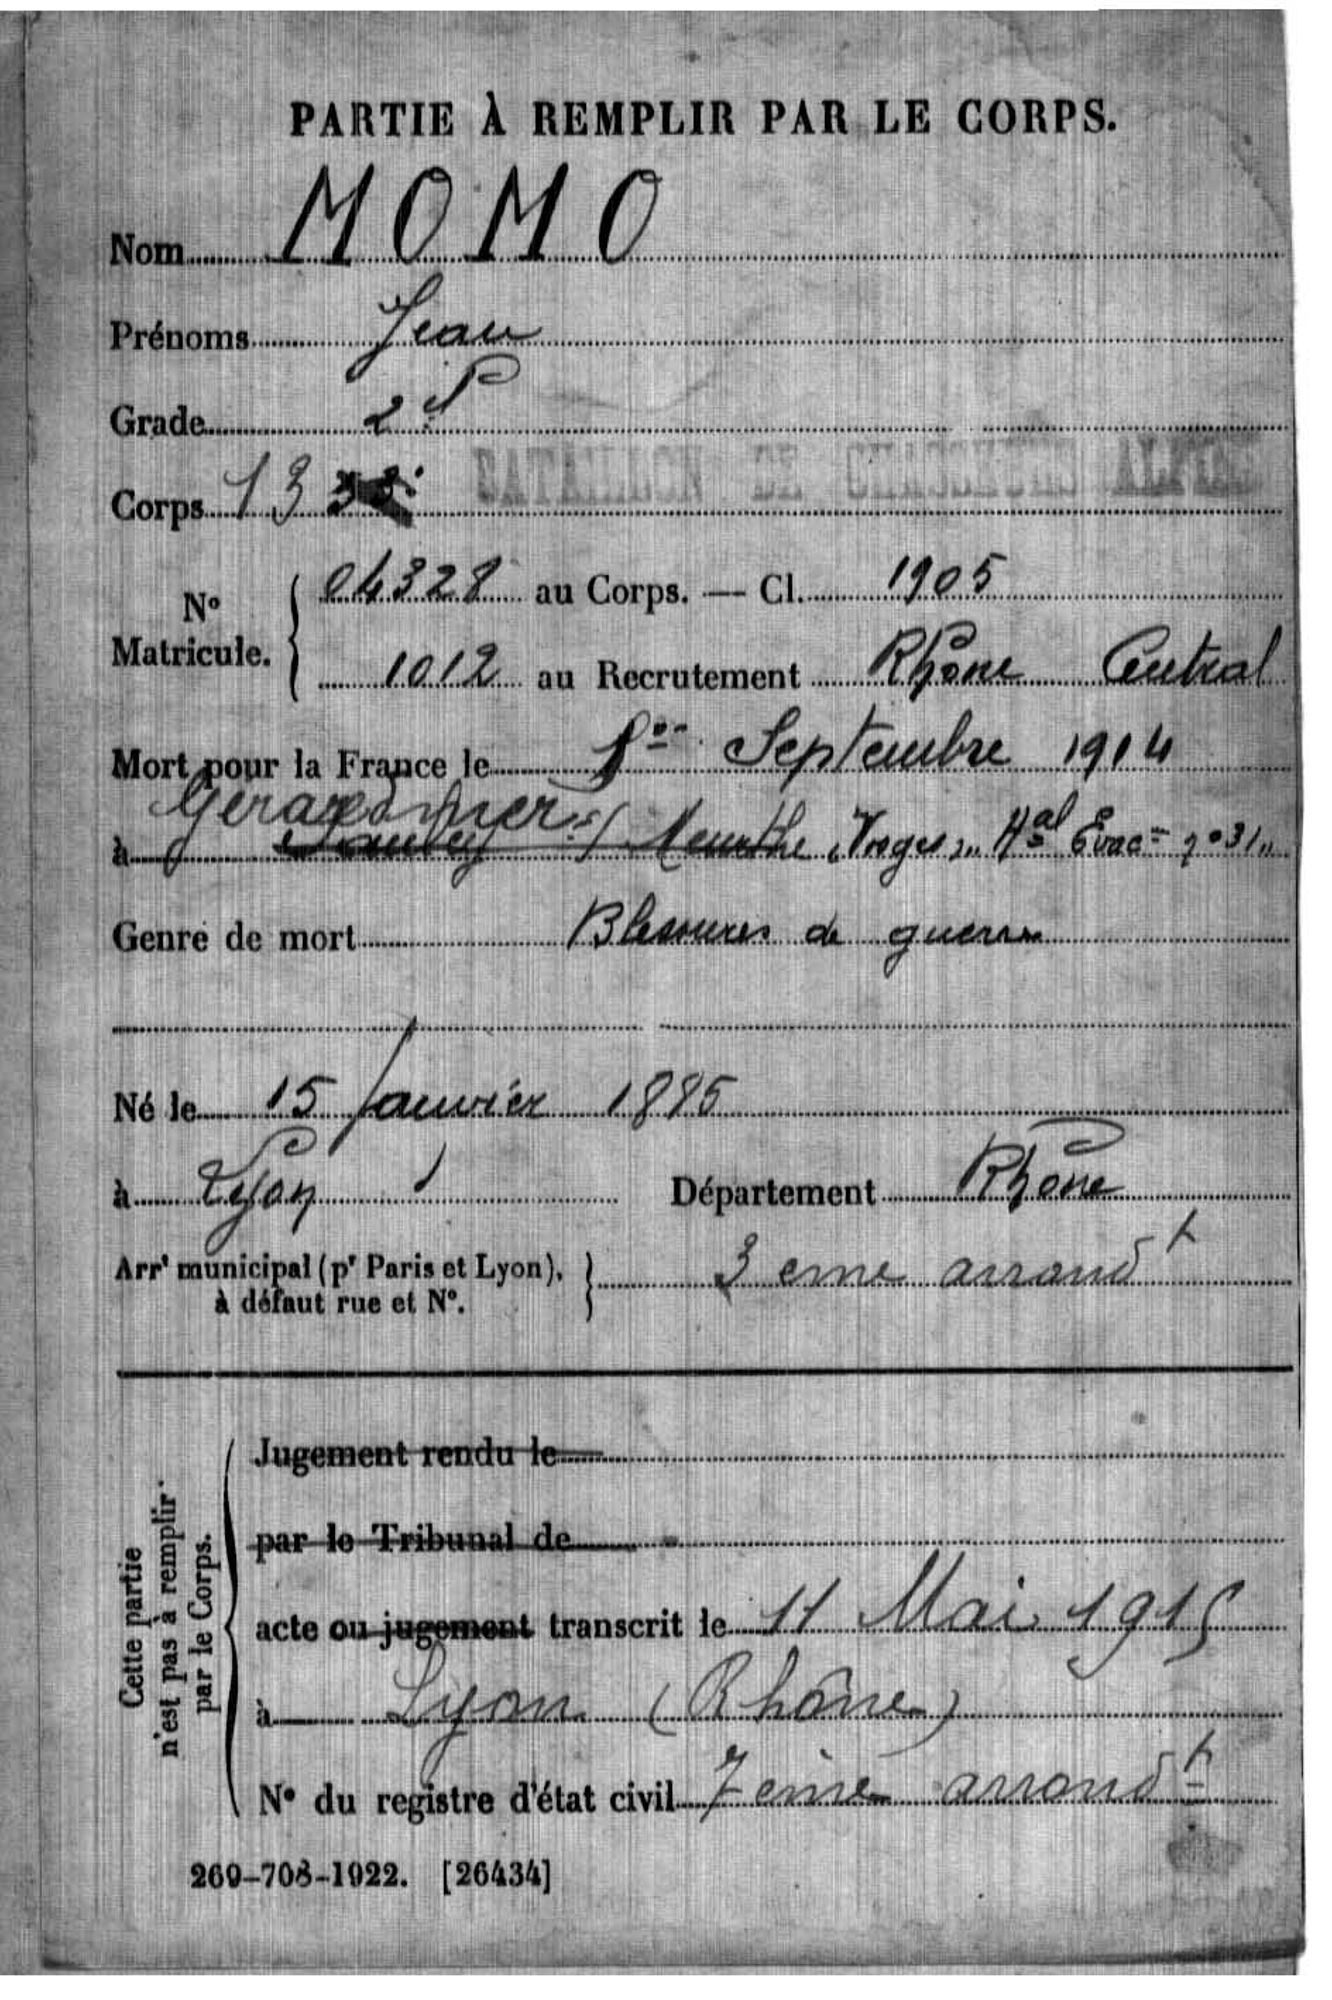 PARTIE À REMPLIR PAR LE CORPS.
Nom MOMO
Prénoms Jean
Grade 2e
Corps 13 BATAILLON DE CHASSEURS ALPINS
N° Matricule. 04328 au Corps. — Cl. 1905
1012 au Recrutement Rhône Central
Mort pour la France le 1er Septembre 1914
Gérardmer
à Meurthe (Vosges) Hal Evac n° 31
Genre de mort Blessures de guerre
Né le 15 Janvier 1885
à Lyon Département Rhône
Arrt municipal (pr Paris et Lyon), 3 eme arrondt
à défaut rue et N°.
Cette partie n'est pas à remplir par le Corps.
Jugement rendu le
par le Tribunal de
acte ou jugement transcrit le 11 Mai 1915
à Lyon (Rhône)
N° du registre d'état civil 7 eme arrondt
269-708-1922. [26434]